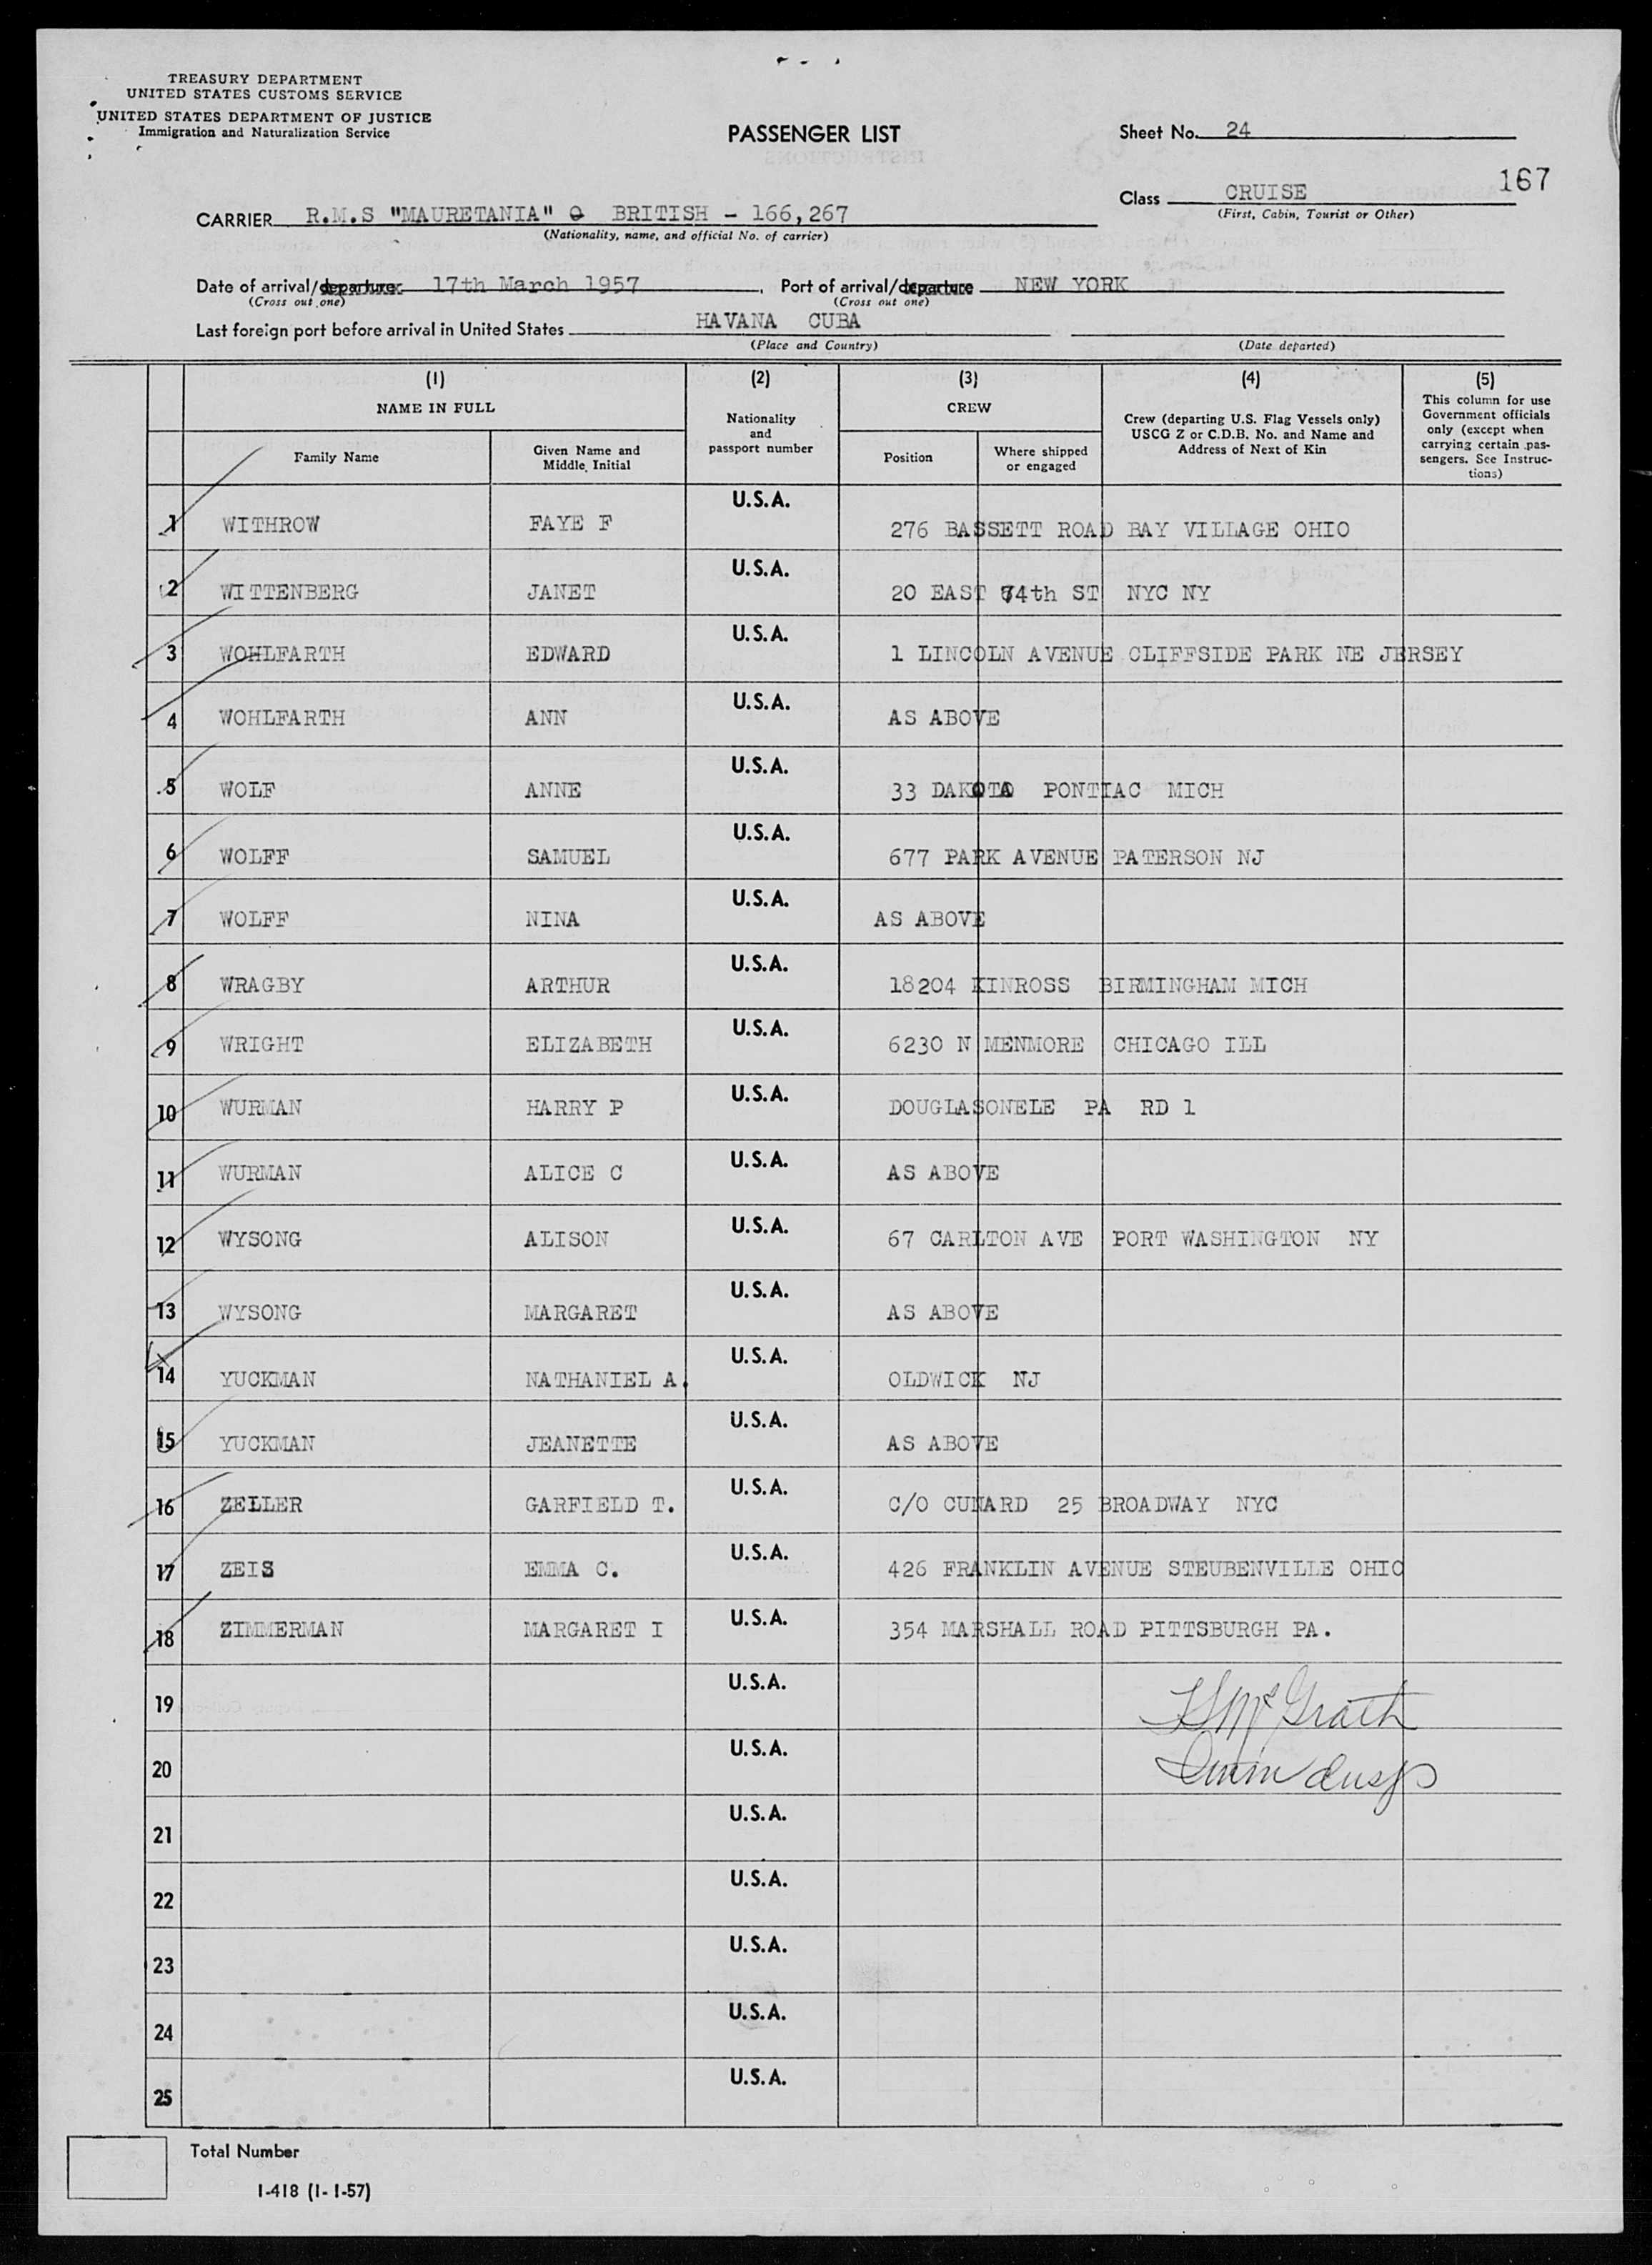 TREASURY DEPARTMENT
UNITED STATES CUSTOMS SERVICE
UNITED STATES DEPARTMENT OF JUSTICE
Immigration and Naturalization Service
PASSENGER LIST
Sheet No. 24
167
Class CRUISE
(First, Cabin, Tourist or Other)
CARRIER R.M.S "MAURETANIA" BRITISH - 166,267
(Nationality, name, and official No. of carrier)
Date of arrival/departure 17th March 1957, Port of arrival/departure NEW YORK
(Cross out one) (Cross out one)
Last foreign port before arrival in United States HAVANA CUBA
(Place and Country) (Date departed)
(1) (2) (3) (4) (5)
NAME IN FULL
Nationality and passport number
CREW
Crew (departing U.S. Flag Vessels only) USCG Z or C.D.B. No. and Name and Address of Next of Kin
This column for use Government officials only (except when carrying certain passengers. See Instructions)
Family Name Given Name and Middle Initial Position Where shipped or engaged
1 WITHROW FAYE F U.S.A. 276 BASSETT ROAD BAY VILLAGE OHIO
2 WITTENBERG JANET U.S.A. 20 EAST 74th ST NYC NY
3 WOHLFARTH EDWARD U.S.A. 1 LINCOLN AVENUE CLIFFSIDE PARK NE JERSEY
4 WOHLFARTH ANN U.S.A. AS ABOVE
5 WOLF ANNE U.S.A. 33 DAKOTA PONTIAC MICH
6 WOLFF SAMUEL U.S.A. 677 PARK AVENUE PATERSON NJ
7 WOLFF NINA U.S.A. AS ABOVE
8 WRAGBY ARTHUR U.S.A. 18204 KINROSS BIRMINGHAM MICH
9 WRIGHT ELIZABETH U.S.A. 6230 N MENMORE CHICAGO ILL
10 WURMAN HARRY P U.S.A. DOUGLASONELE PA RD 1
11 WURMAN ALICE C U.S.A. AS ABOVE
12 WYSONG ALISON U.S.A. 67 CARLTON AVE PORT WASHINGTON NY
13 WYSONG MARGARET U.S.A. AS ABOVE
14 YUCKMAN NATHANIEL A. U.S.A. OLDWICK NJ
15 YUCKMAN JEANETTE U.S.A. AS ABOVE
16 ZELLER GARFIELD T. U.S.A. C/O CUNARD 25 BROADWAY NYC
17 ZEIS EMMA C. U.S.A. 426 FRANKLIN AVENUE STEUBENVILLE OHIO
18 ZIMMERMAN MARGARET I U.S.A. 354 MARSHALL ROAD PITTSBURGH PA.
19 U.S.A. McGrath
20 U.S.A.
21 U.S.A.
22 U.S.A.
23 U.S.A.
24 U.S.A.
25 U.S.A.
Total Number
I-418 (1-1-57)